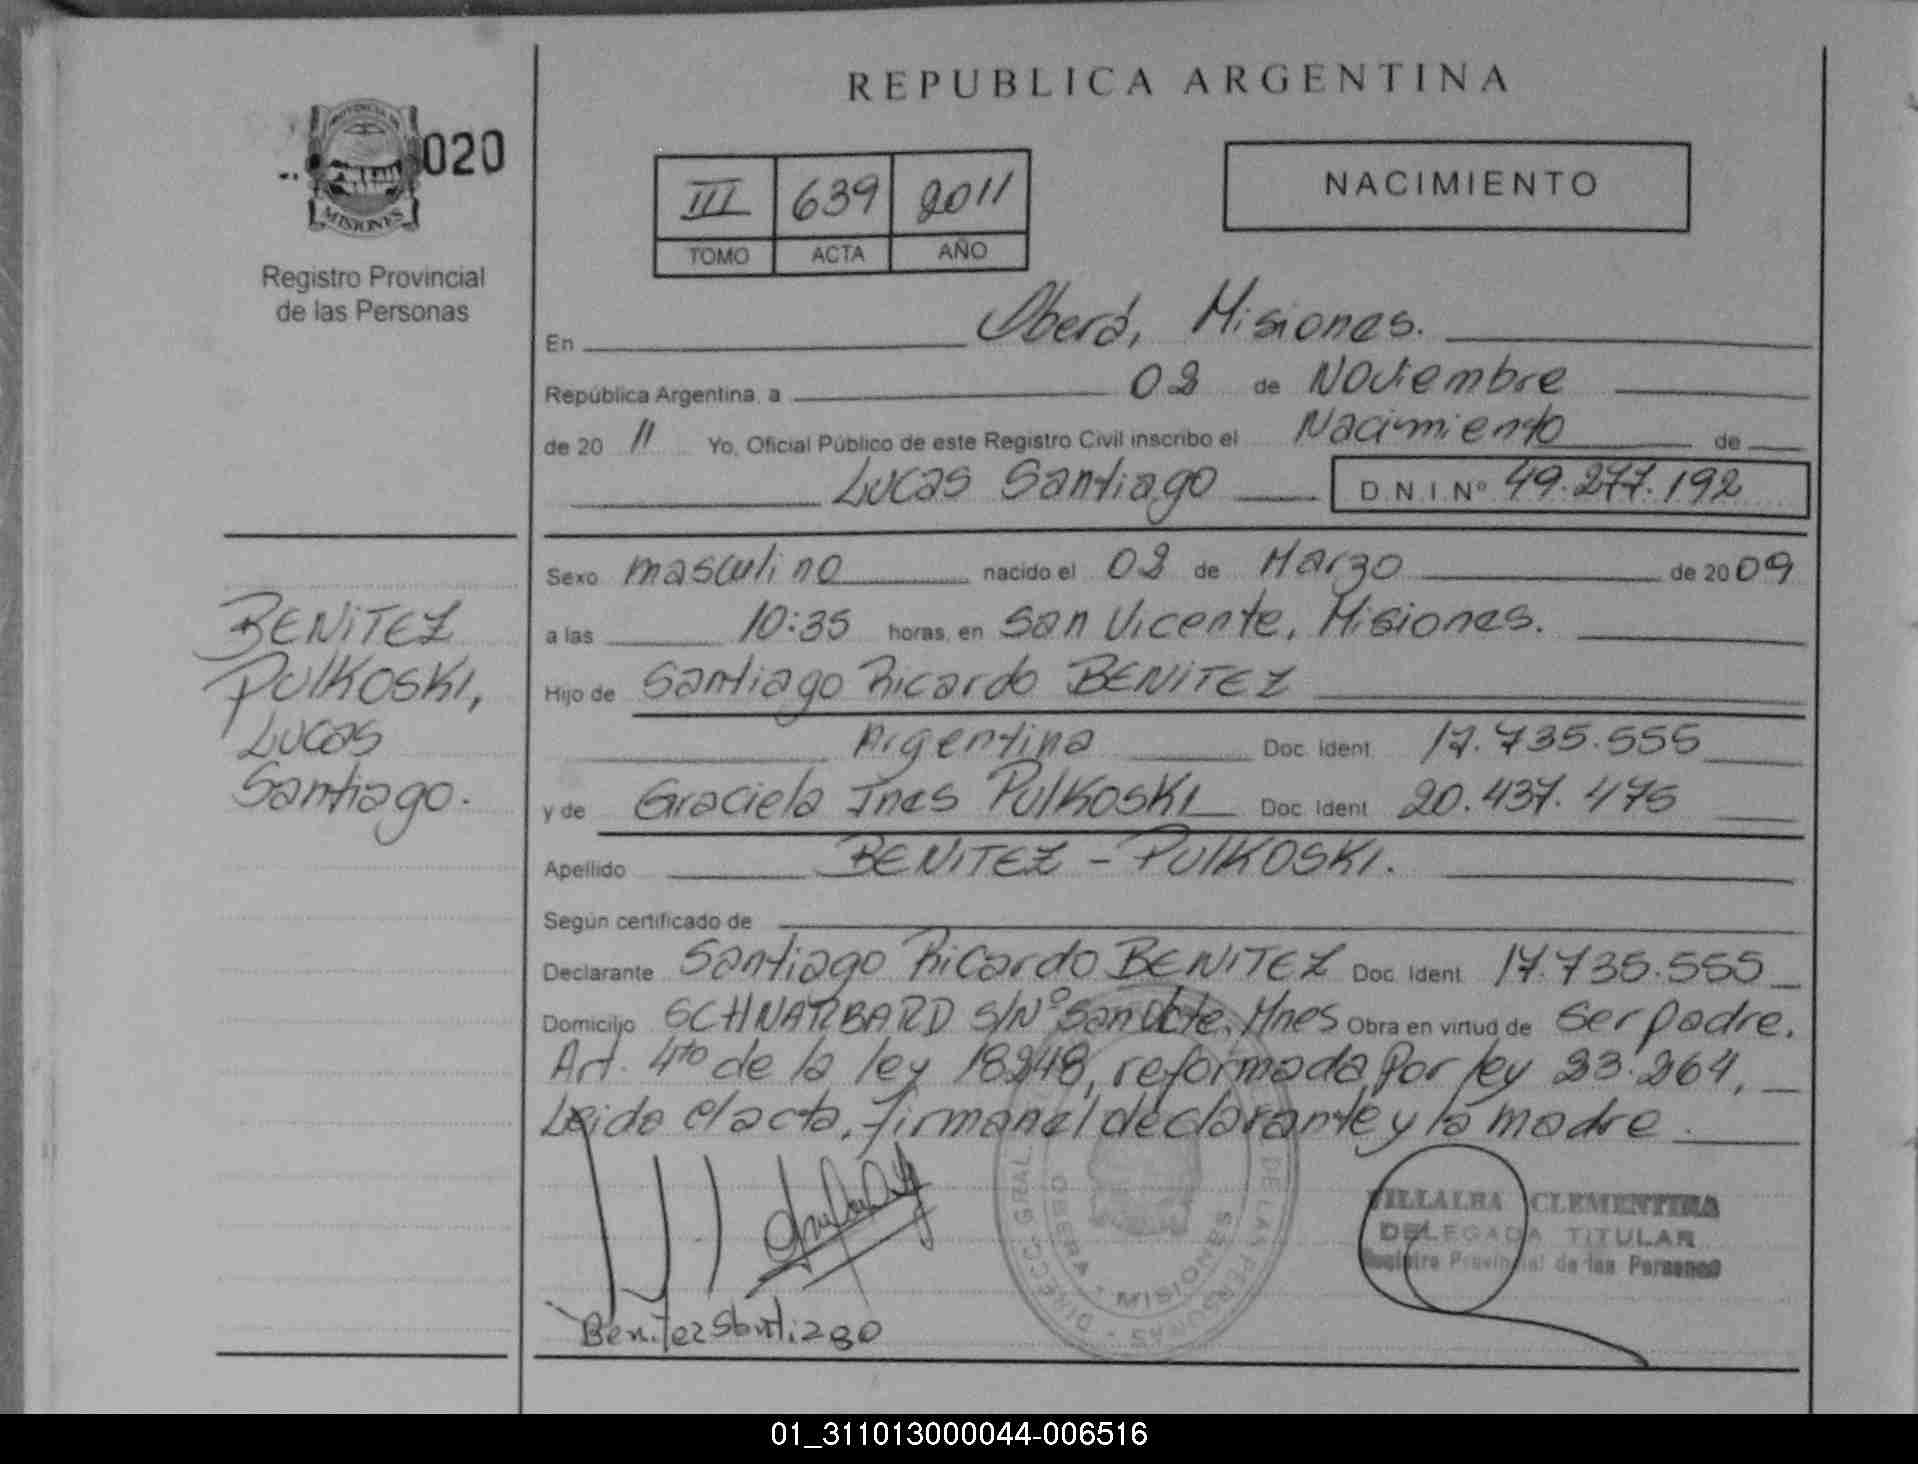 REPUBLICA ARGENTINA
PROVINCIA DE
MISIONES
020
Registro Provincial
de las Personas
III 639 2011
TOMO ACTA AÑO
NACIMIENTO
En Oberá, Misiones.
República Argentina, a 02 de Noviembre
de 20 11 Yo, Oficial Público de este Registro Civil inscribo el Nacimiento de
Lucas Santiago D.N.I.Nº 49.277.192
BENITEZ
PULKOSKI,
Lucas
Santiago.
Sexo masculino nacido el 02 de Marzo de 2009
a las 10:35 horas, en San Vicente, Misiones.
Hijo de Santiago Ricardo BENITEZ
Argentina Doc. Ident. 17.735.555
y de Graciela Ines PULKOSKI Doc. Ident. 20.437.475
Apellido BENITEZ - PULKOSKI.
Según certificado de
Declarante Santiago Ricardo BENITEZ Doc. Ident. 17.735.555
Domicilio SCHNARBARD S/Nº San Vcte, Mnes Obra en virtud de ser padre.
Art. 4to de la ley 18248, reformada por ley 23.264,
Leida el acta, firman el declarante y la madre.
Benitez Santiago
DIRECC. GRAL. DE LAS PERSONAS
OBERA - MISIONES
VILLALBA CLEMENTINA
DELEGADA TITULAR
Registro Provincial de las Personas
01_311013000044-006516